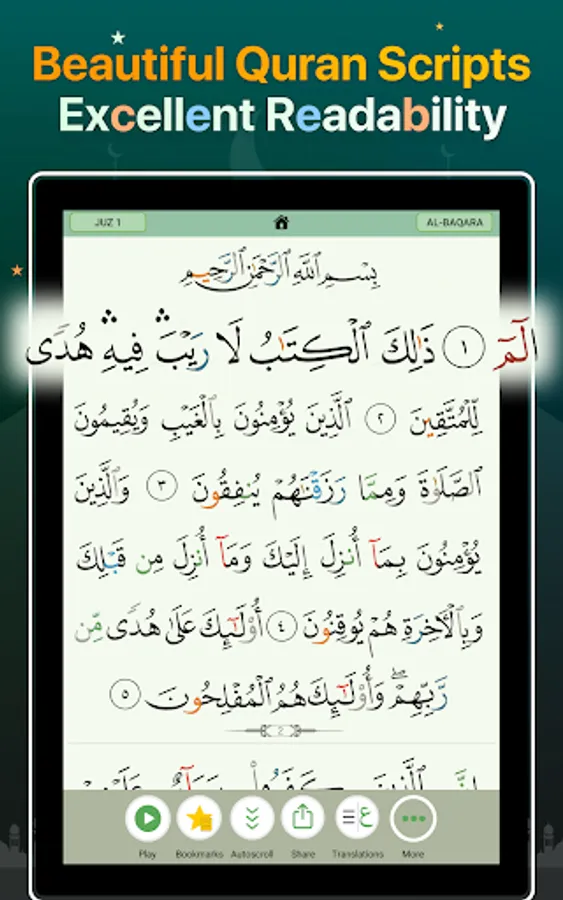 Beautiful Quran Scripts
Excellent Readability
JUZ 1
AL-BAQARA
بِسْمِ ٱللَّهِ ٱلرَّحْمَٰنِ ٱلرَّحِيمِ
الٓمٓ ١ ذَٰلِكَ ٱلْكِتَٰبُ لَا رَيْبَ ۛ فِيهِ ۛ هُدًى
لِّلْمُتَّقِينَ ٢ ٱلَّذِينَ يُؤْمِنُونَ بِٱلْغَيْبِ وَيُقِيمُونَ
ٱلصَّلَوٰةَ وَمِمَّا رَزَقْنَٰهُمْ يُنفِقُونَ ٣ وَٱلَّذِينَ
يُؤْمِنُونَ بِمَآ أُنزِلَ إِلَيْكَ وَمَآ أُنزِلَ مِن قَبْلِكَ
وَبِٱلْأَخِرَةِ هُمْ يُوقِنُونَ ٤ أُو۟لَٰٓئِكَ عَلَىٰ هُدًى مِّن
رَّبِّهِمْ ۖ وَأُو۟لَٰٓئِكَ هُمُ ٱلْمُفْلِحُونَ ٥
2
Play
Bookmarks
Autoscroll
Share
Translations
More